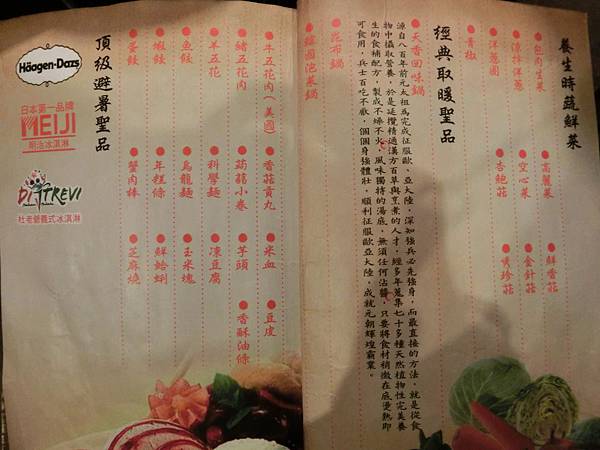 養生時蔬鮮菜
●包肉生菜 ●高麗菜 ●鮮香菇
●涼拌洋蔥 ●空心菜 ●金針菇
●洋蔥圈 ●杏鮑菇 ●秀珍菇
●青椒
經典取暖聖品
●天香回味鍋
源自八百年前元太祖為完成征服歐、亞大陸，深知強兵必先強身，而最直接的方法，就是從食
物中攝取營養，於是延攬精通漢方百草與烹煮的人才，經多年蒐集七十多種天然植物性完美養
生的食補配方，製成不燥不火，風味獨特的湯底，無須任何沾醬，只要將食材稍微在底燙熟即
可食用，兵士百吃不厭，個個身強體壯，順利征服歐亞大陸，成就元朝輝煌霸業。
●昆布鍋
●韓國泡菜鍋
●牛五花肉(美國) ●香菇貢丸 ●米血 ●豆皮
●豬五花肉 ●蒟蒻小卷 ●芋頭 ●香酥油條
●羊五花 ●科學麵 ●凍豆腐
●魚餃 ●烏龍麵 ●玉米塊
●蝦餃 ●年糕條 ●鮮蛤蜊
●蛋餃 ●蟹肉棒 ●芝麻燒
頂級避暑聖品
Häagen-Dazs
日本第一品牌
MEIJI
明治冰淇淋
DI TREVI
杜老爺義式冰淇淋